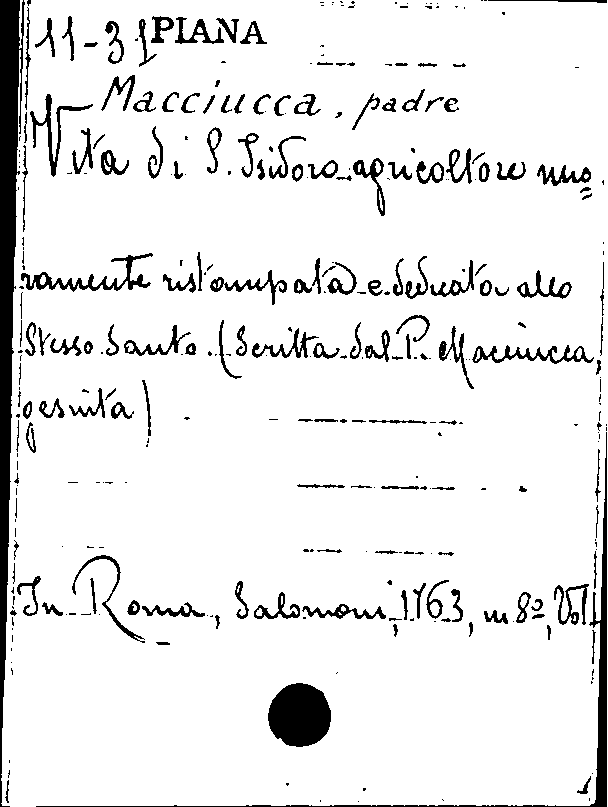 11-31 PIANA
Macciucca, padre
Vita di S. Isidoro agricoltore nuo=
vamente ristampata e dedicata allo
Stesso Santo. (Scritta dal P. Macciucca,
gesuita)
In Roma, Salomoni, 1763, in 8º, Vol.
1